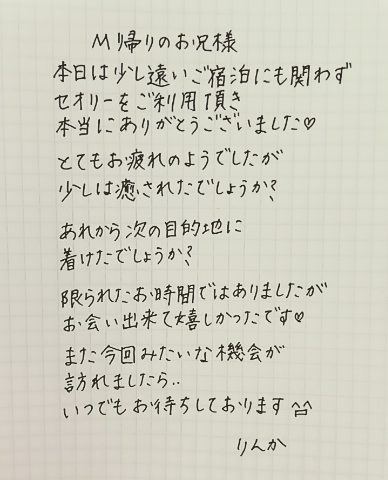 M帰りのお兄様
本日は少し遠いご宿泊にも関わず
セオリーをご利用頂き
本当にありがとうございました♡
とてもお疲れのようでしたが
少しは癒されたでしょうか?
あれから次の目的地に
着けたでしょうか?
限られたお時間ではありましたが
お会い出来て嬉しかったです♡
また今回みたいな機会が
訪れましたら..
いつでもお待ちしております^^
りんか